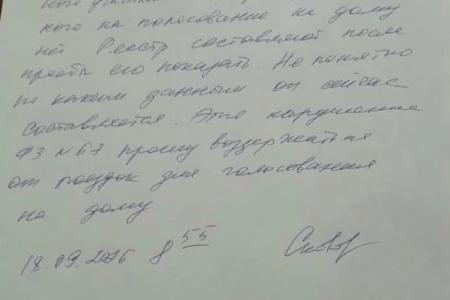 ного на голосование на дому
нет Реестр составляют после
просьбы его показать. Не понятно
по каким данным он сейчас
составляется. Это нарушение
ФЗ №67 прошу воздержаться
от поездок для голосования
на дому
18.09.2016 8 55